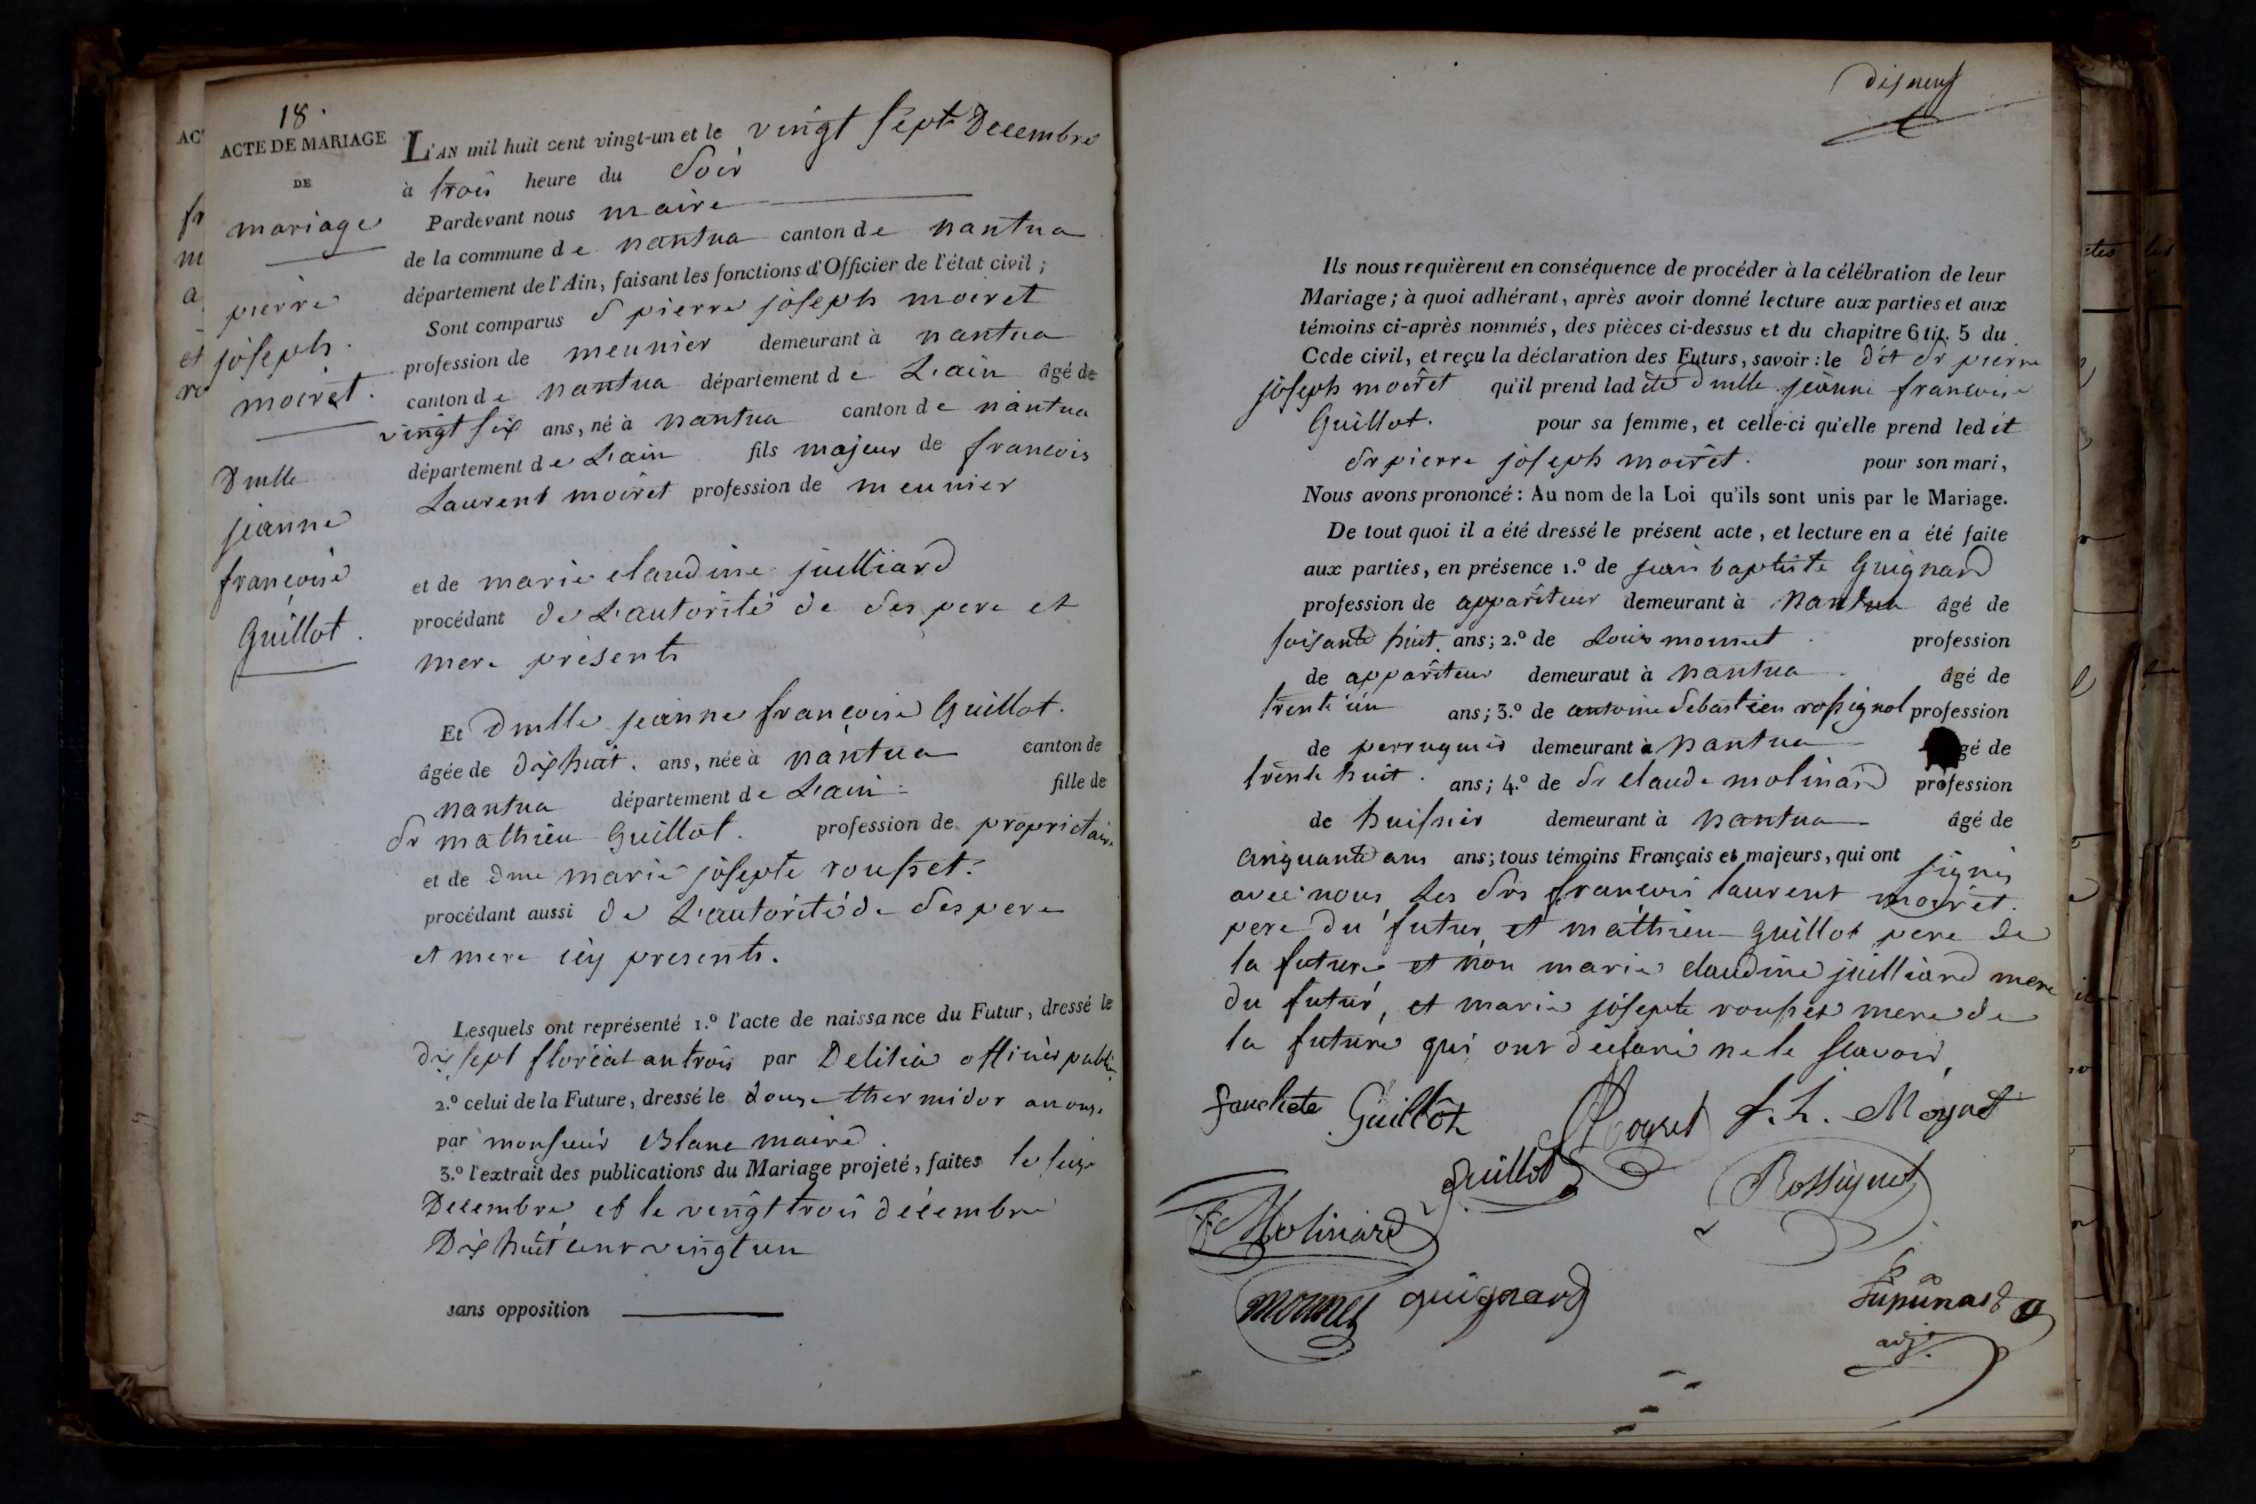 18.
ACTE DE MARIAGE
DE
mariage
pierre
joseph.
moiret.
Dmlle
jeanne
françoise
Guillot.
L'AN mil huit cent vingt-un et le vingt sept Decembre
à trois heure du soir
Pardevant nous maire
de la commune de nantua canton de nantua
département de l'Ain, faisant les fonctions d'Officier de l'état civil;
Sont comparus S pierre joseph moiret
profession de meunier demeurant à nantua
canton de nantua département de L'ain âgé de
vingt six ans, né à nantua canton de nantua
département de L'ain fils majeur de francois
Laurent moiret profession de meunier
et de marie claudine juilliard
procédant de L'autorité de ses pere et
mere présents
Et Dmlle jeanne françoise Guillot.
âgée de dix huit. ans, née à nantua canton de
nantua département de L'ain fille de
Sr mathieu Guillot. profession de proprietaire
et de dme marie josepte rousset.
procédant aussi de L'autorité de ses pere
et mere icy presents.
Lesquels ont représenté 1.º l'acte de naissance du Futur, dressé le
dix sept floréal an trois par Delilia officier public
2.º celui de la Future, dressé le douze thermidor an onze
par monsieur Blanc maire.
3.º l'extrait des publications du Mariage projeté, faites le seize
Decembre et le vingt trois décembre
Dix huit cent vingt un
sans opposition
dix neuf
Ils nous requièrent en conséquence de procéder à la célébration de leur
Mariage; à quoi adhérant, après avoir donné lecture aux parties et aux
témoins ci-après nommés, des pièces ci-dessus et du chapitre 6 tit. 5 du
Code civil, et reçu la déclaration des Futurs, savoir: le dit Sr pierre
joseph moiret qu'il prend ladite dmlle jeanne francoise
Guillot. pour sa femme, et celle-ci qu'elle prend ledit
Sr pierre joseph moiret. pour son mari,
Nous avons prononcé: Au nom de la Loi qu'ils sont unis par le Mariage.
De tout quoi il a été dressé le présent acte, et lecture en a été faite
aux parties, en présence 1.º de jean baptiste Guignard
profession de appariteur demeurant à Nantua âgé de
soisante huit. ans; 2.º de Louis monnet profession
de appariteur demeuraut à nantua âgé de
trente un ans; 3.º de antoine Sebastien rossignol profession
de perruquier demeurant à nantua gé de
trente huit. ans; 4.º de Sr Claude molinard profession
de huissier demeurant à nantua âgé de
cinquante ans ans; tous témoins Français et majeurs, qui ont signés
avec nous, Les Srs francois laurent moiret.
pere du futur, et mathieu Guillot pere de
la future et non marie claudine juilliard mere
du futur, et marie josepte rousset mere de
la future qui ont déclaré ne le scavoir,
fanchete Guillot Moyret f. L. Moyret
Guillot Rossignol
Molinard
monnet guignard
adj.